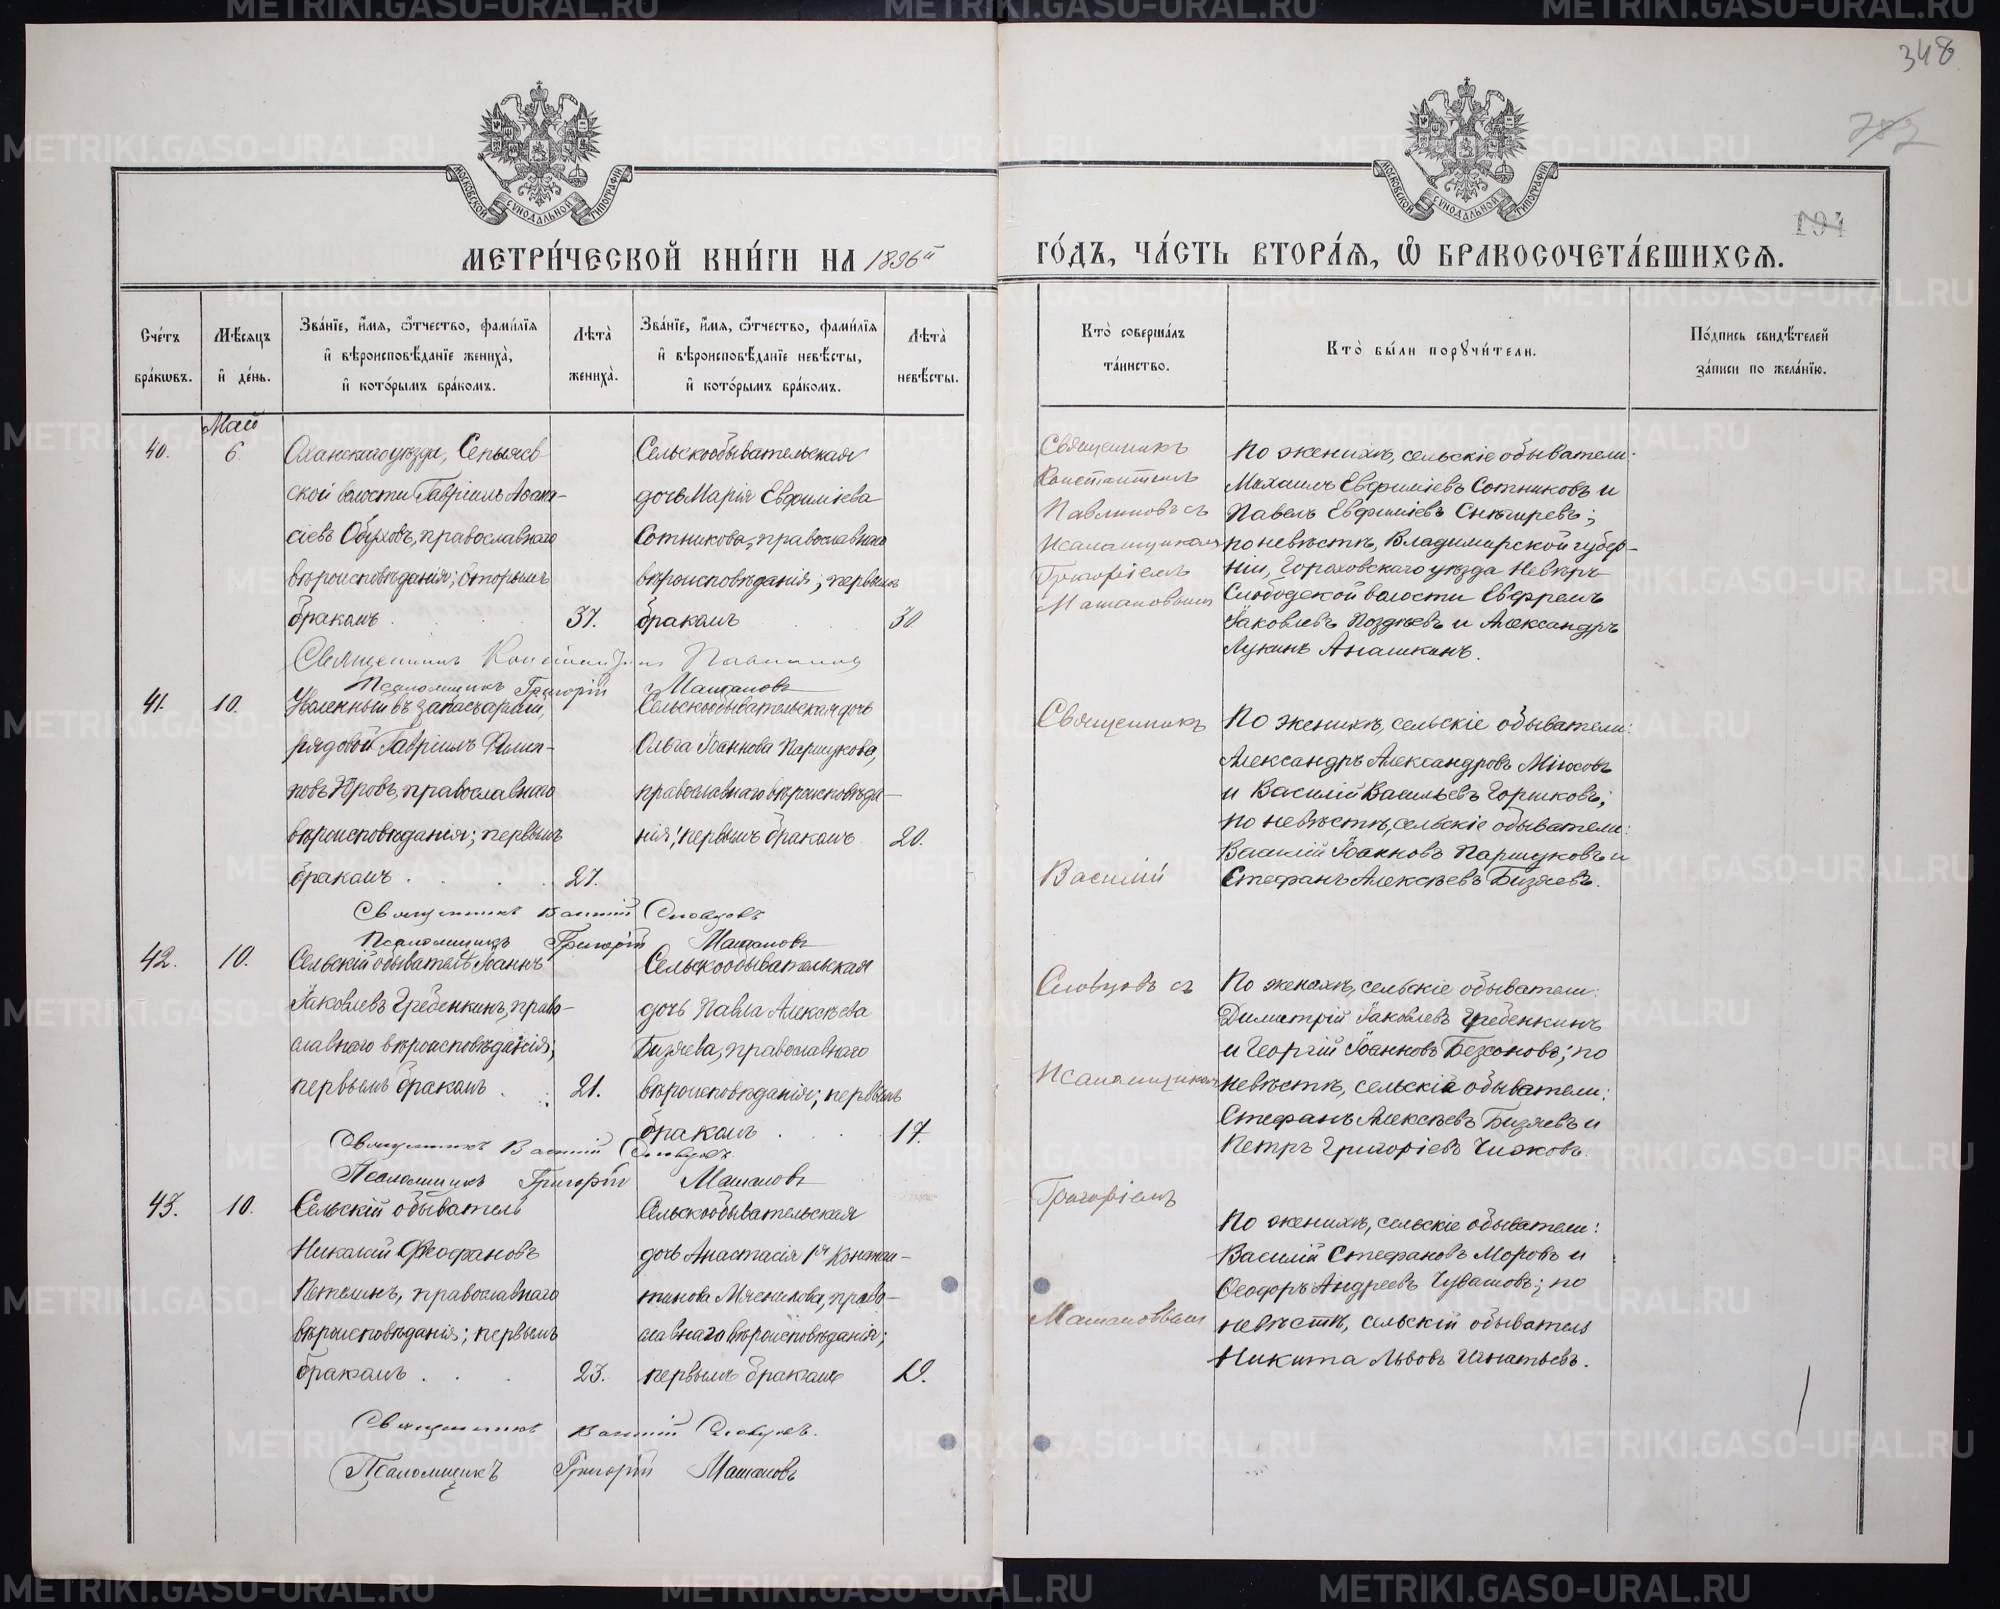 348
194
МОСКОВСКОЙ СУНОДАЛЬНОЙ ТИПОГРАФІИ
МОСКОВСКОЙ СУНОДАЛЬНОЙ ТИПОГРАФІИ
МЕТРИ́ЧЕСКОЙ КНИ́ГИ НА 1896й
ГО́ДЪ, ЧА́СТЬ ВТОРА́Я, Ѽ БРАКОСОЧЕТА́ВШИХСѦ.
Сче́тъ
бра́кѡвъ.
Мѣ́сяцъ
и҆ де́нь.
Зва́нїе, и҆́мя, ѻ҆́тчество, фами́лїя
и҆ вѣроисповѣ́данїе жениха̀,
и҆ кото́рымъ бра́комъ.
Лѣта̀
жениха̀.
Зва́нїе, и҆́мя, ѻ҆́тчество, фами́лїя
и҆ вѣроисповѣ́данїе невѣ́сты,
и҆ кото́рымъ бра́комъ.
Лѣта̀
невѣ́сты.
Кто̀ соверша́лъ
та́инство.
Кто̀ бы́ли порꙋчи́тели.
По́дпись свидѣ́телей
за́писи по жела́нїю.
Май
40.
6.
Оханскаго уѣзда, Сепычев
ской волости Гавріилъ Аѳана-
сіевъ Обуховъ, православнаго
вѣроисповѣданія; вторымъ
бракомъ
37.
Сельскообывательская
дочь Марія Евфиміева
Сотникова, православнаго
вѣроисповѣданія; первымъ
бракомъ
30
Священникъ
Константинъ
Павлиновъ съ
Псаломщикомъ
Григоріемъ
Машановымъ
По женихѣ, сельскіе обыватели:
Михаилъ Евфиміевъ Сотниковъ и
Павелъ Евфиміевъ Снѣгиревъ;
по невѣстѣ, Владимірской губер-
ніи, Гороховскаго уѣзда
Слободской волости Ефремъ
Іаковлевъ Поздѣевъ и Александръ
Лукинъ Анашкинъ.
Священникъ Константинъ Павлинов
Псаломщикъ Григорій Машановъ
41.
10.
Уволенный въ запасъ арміи,
рядовой Гавріилъ Филип-
повъ Юровъ, православнаго
вѣроисповѣданія; первымъ
бракомъ
27.
Сельскообывательская дочь
Ольга Іоаннова Паршукова,
православнаго вѣроисповѣда-
нія; первымъ бракомъ
20.
Священникъ
Василій
По женихѣ, сельскіе обыватели:
Александръ Александровъ Мѣюсовъ
и Василій Васильевъ Горшковъ;
по невѣстѣ, сельскіе обыватели:
Василій Іоанновъ Паршуковъ и
Стефанъ Алексѣевъ Бизяевъ.
Священникъ Василій Словцовъ
Псаломщикъ Григорій Машановъ
42.
10.
Сельскій обыватель Іоаннъ
Іаковлевъ Гребенкинъ, право-
славнаго вѣроисповѣданія;
первымъ бракомъ
21.
Сельскообывательская
дочь Павла Алексѣева
Бизяева, православнаго
вѣроисповѣданія; первымъ
бракомъ
17.
Словцовъ съ
Псаломщикомъ
По женихѣ, сельскіе обыватели:
Димитрій Іаковлевъ Гребенкинъ
и Георгій Іоанновъ Безсоновъ; по
невѣстѣ, сельскіе обыватели:
Стефанъ Алексѣевъ Бизяевъ и
Петръ Григоріевъ Чижовъ.
Священникъ Василій Словцовъ
Псаломщикъ Григорій Машановъ
43.
10.
Сельскій обыватель
Николай Ѳеофановъ
Петелинъ, православнаго
вѣроисповѣданія; первымъ
бракомъ
23.
Сельскообывательская
дочь Анастасія 1я Констан-
тинова Мячкилова, право-
славнаго вѣроисповѣданія;
первымъ бракомъ
19.
Григоріемъ
Машановымъ
По женихѣ, сельскіе обыватели:
Василій Стефановъ Моровъ и
Ѳеодоръ Андреевъ Чувашовъ; по
невѣстѣ, сельскій обыватель
Никита Львовъ Игнатьевъ.
Священникъ Василій Словцовъ.
Псаломщикъ Григорій Машановъ
METRIKI.GASO-URAL.RU